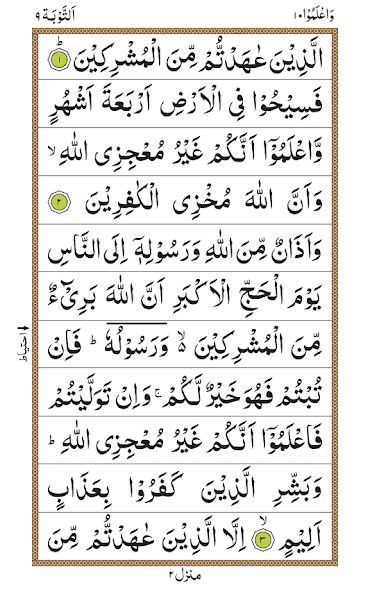 وَاعْلَمُوْٓا ١٠ اَلتَّوْبَة ٩
الَّذِيْنَ عٰهَدْتُّمْ مِّنَ الْمُشْرِكِيْنَ ؕ ١
فَسِيْحُوْا فِى الْاَرْضِ اَرْبَعَةَ اَشْهُرٍ
وَّاعْلَمُوْٓا اَنَّكُمْ غَيْرُ مُعْجِزِى اللّٰهِ ۙ
وَاَنَّ اللّٰهَ مُخْزِى الْكٰفِرِيْنَ ٢
وَاَذَانٌ مِّنَ اللّٰهِ وَرَسُوْلِهٖٓ اِلَى النَّاسِ
يَوْمَ الْحَجِّ الْاَكْبَرِ اَنَّ اللّٰهَ بَرِىْٓءٌ
مِّنَ الْمُشْرِكِيْنَ ۙ۬ وَرَسُوْلُهٗ ؕ فَاِنْ
احتياط
تُبْتُمْ فَهُوَ خَيْرٌ لَّكُمْ ۚ وَاِنْ تَوَلَّيْتُمْ
فَاعْلَمُوْٓا اَنَّكُمْ غَيْرُ مُعْجِزِى اللّٰهِ ؕ
وَبَشِّرِ الَّذِيْنَ كَفَرُوْا بِعَذَابٍ
اَلِيْمٍ ۙ ٣ اِلَّا الَّذِيْنَ عٰهَدْتُّمْ مِّنَ
منزل ٢